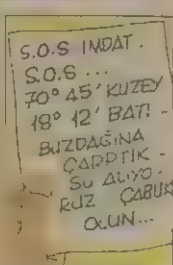 S.O.S İMDAT.
S.O.S...
70° 45' KUZEY
18° 12' BATI
BUZDAĞINA
ÇARPTIK.
SU ALIYO.
RUZ ÇABUK
OLUN...